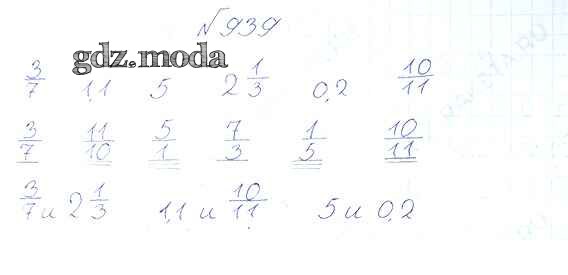 №939
gdz.moda
3/7 1,1 5 2 1/3 0,2 10/11
3/7 11/10 5/1 7/3 1/5 10/11
3/7 и 2 1/3 1,1 и 10/11 5 и 0,2